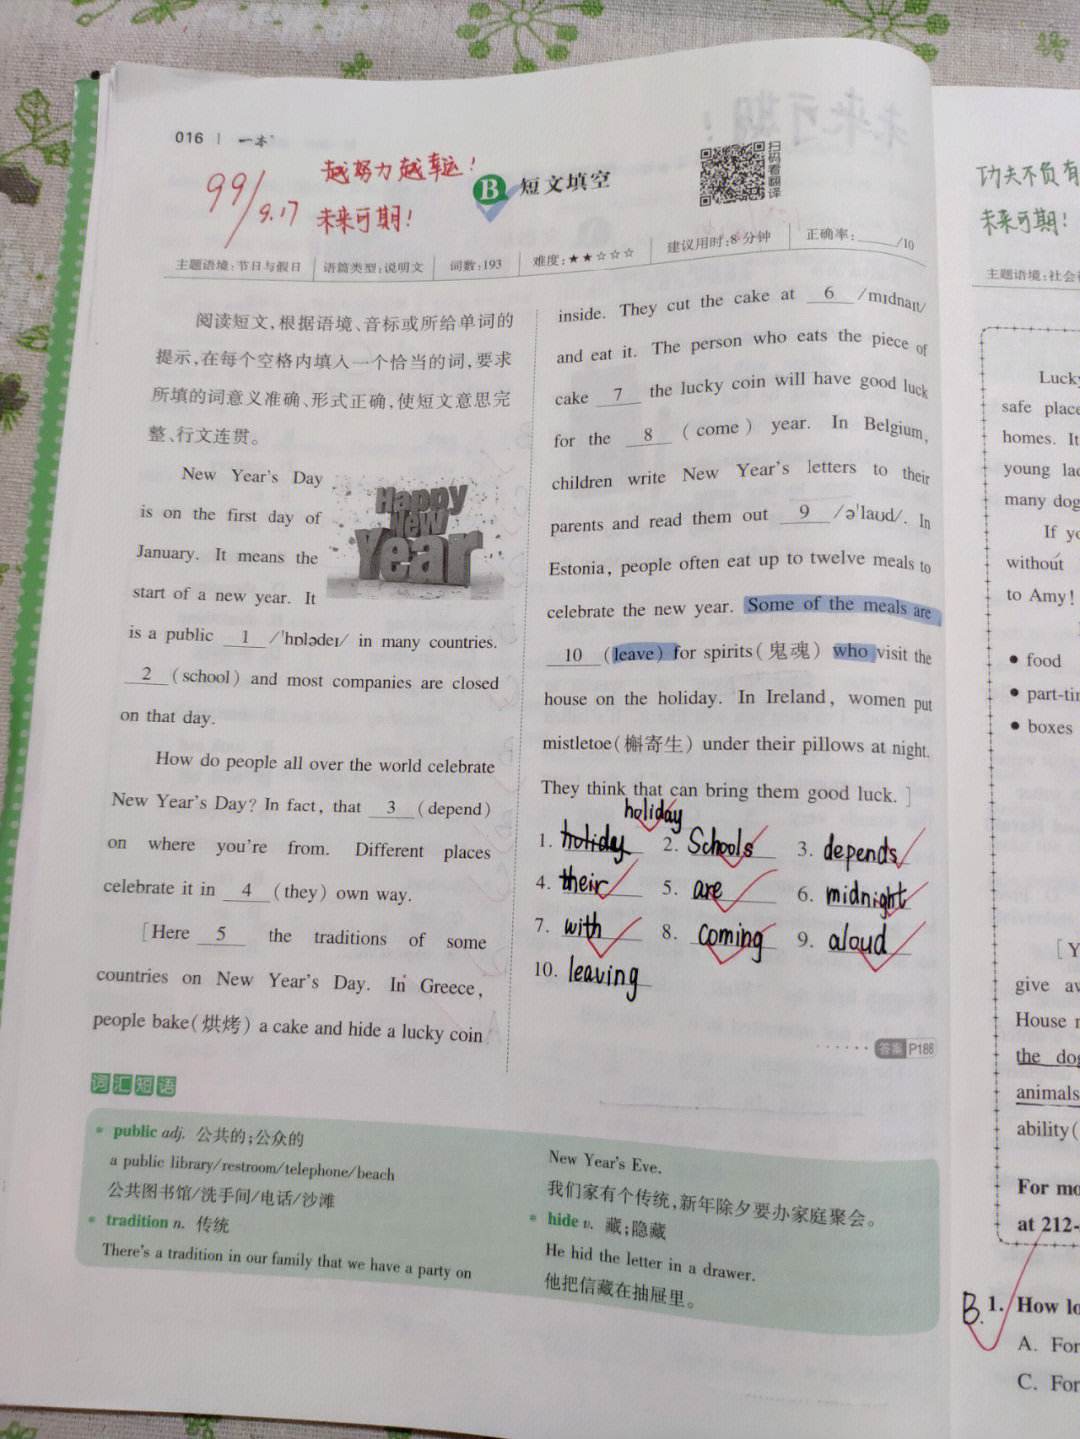 016 | 一本
99/9.17
越努力越幸运!
未来可期!
B 短文填空
扫码看翻译
主题语境:节日与假日 | 语篇类型:说明文 | 词数:193 | 难度:★★☆☆☆ | 建议用时:8分钟 | 正确率:____/10
阅读短文,根据语境、音标或所给单词的
提示,在每个空格内填入一个恰当的词,要求
所填的词意义准确、形式正确,使短文意思完
整、行文连贯。
New Year's Day
is on the first day of
January. It means the
start of a new year. It
Happy
New
Year
is a public 1 /'hɒlədeɪ/ in many countries.
2 (school) and most companies are closed
on that day.
How do people all over the world celebrate
New Year's Day? In fact, that 3 (depend)
on where you're from. Different places
celebrate it in 4 (they) own way.
[Here 5 the traditions of some
countries on New Year's Day. In Greece,
people bake(烘烤) a cake and hide a lucky coin
inside. They cut the cake at 6 /mɪdnaɪt/
and eat it. The person who eats the piece of
cake 7 the lucky coin will have good luck
for the 8 (come) year. In Belgium,
children write New Year's letters to their
parents and read them out 9 /ə'laʊd/. In
Estonia, people often eat up to twelve meals to
celebrate the new year. Some of the meals are
10 (leave) for spirits(鬼魂) who visit the
house on the holiday. In Ireland, women put
mistletoe(槲寄生) under their pillows at night.
They think that can bring them good luck. ]
holiday
1. holidy 2. Schools 3. depends
4. their 5. are 6. midnight
7. with 8. coming 9. aloud
10. leaving
······答案 P188
词汇短语
public adj. 公共的;公众的
a public library/restroom/telephone/beach
公共图书馆/洗手间/电话/沙滩
tradition n. 传统
There's a tradition in our family that we have a party on
New Year's Eve.
我们家有个传统,新年除夕要办家庭聚会。
hide v. 藏;隐藏
He hid the letter in a drawer.
他把信藏在抽屉里。
功夫不负有
未来可期!
主题语境:社会
Lucky
safe place
homes. It
young lad
many dog
If yo
without
to Amy!
food
part-tim
boxes
[Y
give av
House r
the dog
animals
ability(
For mo
at 212-
B. 1. How lo
A. For
C. For